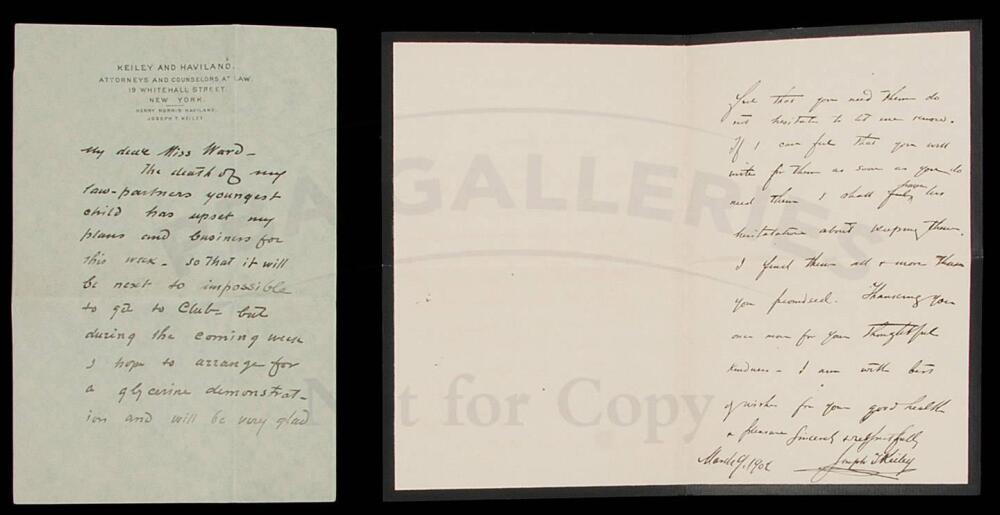 KEILEY AND HAVILAND.
ATTORNEYS AND COUNSELORS AT LAW.
19 WHITEHALL STREET.
NEW YORK.
HENRY NORRIS HAVILAND.
JOSEPH T. KEILEY.
My dear Miss Ward —
The death of my
law-partners youngest
child has upset my
plans and business for
this week - so that it will
be next to impossible
to get to Club - but
during the coming week
I hope to arrange for
a glycerine demonstrat-
ion and will be very glad
feel that you need them do
not hesitate to let me know.
If I can feel that you will
write for them as soon as you do
need them I shall feel have less
hesitation about keeping them.
I find them all & more than
you promised. Thanking you
once more for your thoughtful
kindness - I am with best
of wishes for your good health
& pleasure Sincerely & respectfully
March 9, 1902 Joseph T Keiley
GALLERIES
Not for Copy